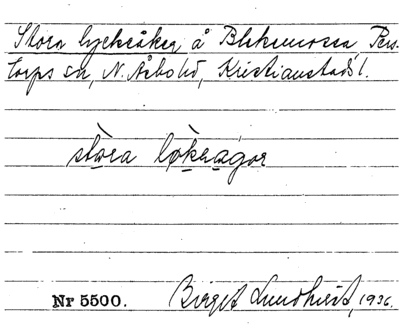 Stora lyckeåker å Blekemossa, Pers-
torps sn, N. Åsbo hd, Kristianstads l.
stòra lỳkragor
Nr 5500.
Birget Lundkvist, 1936.